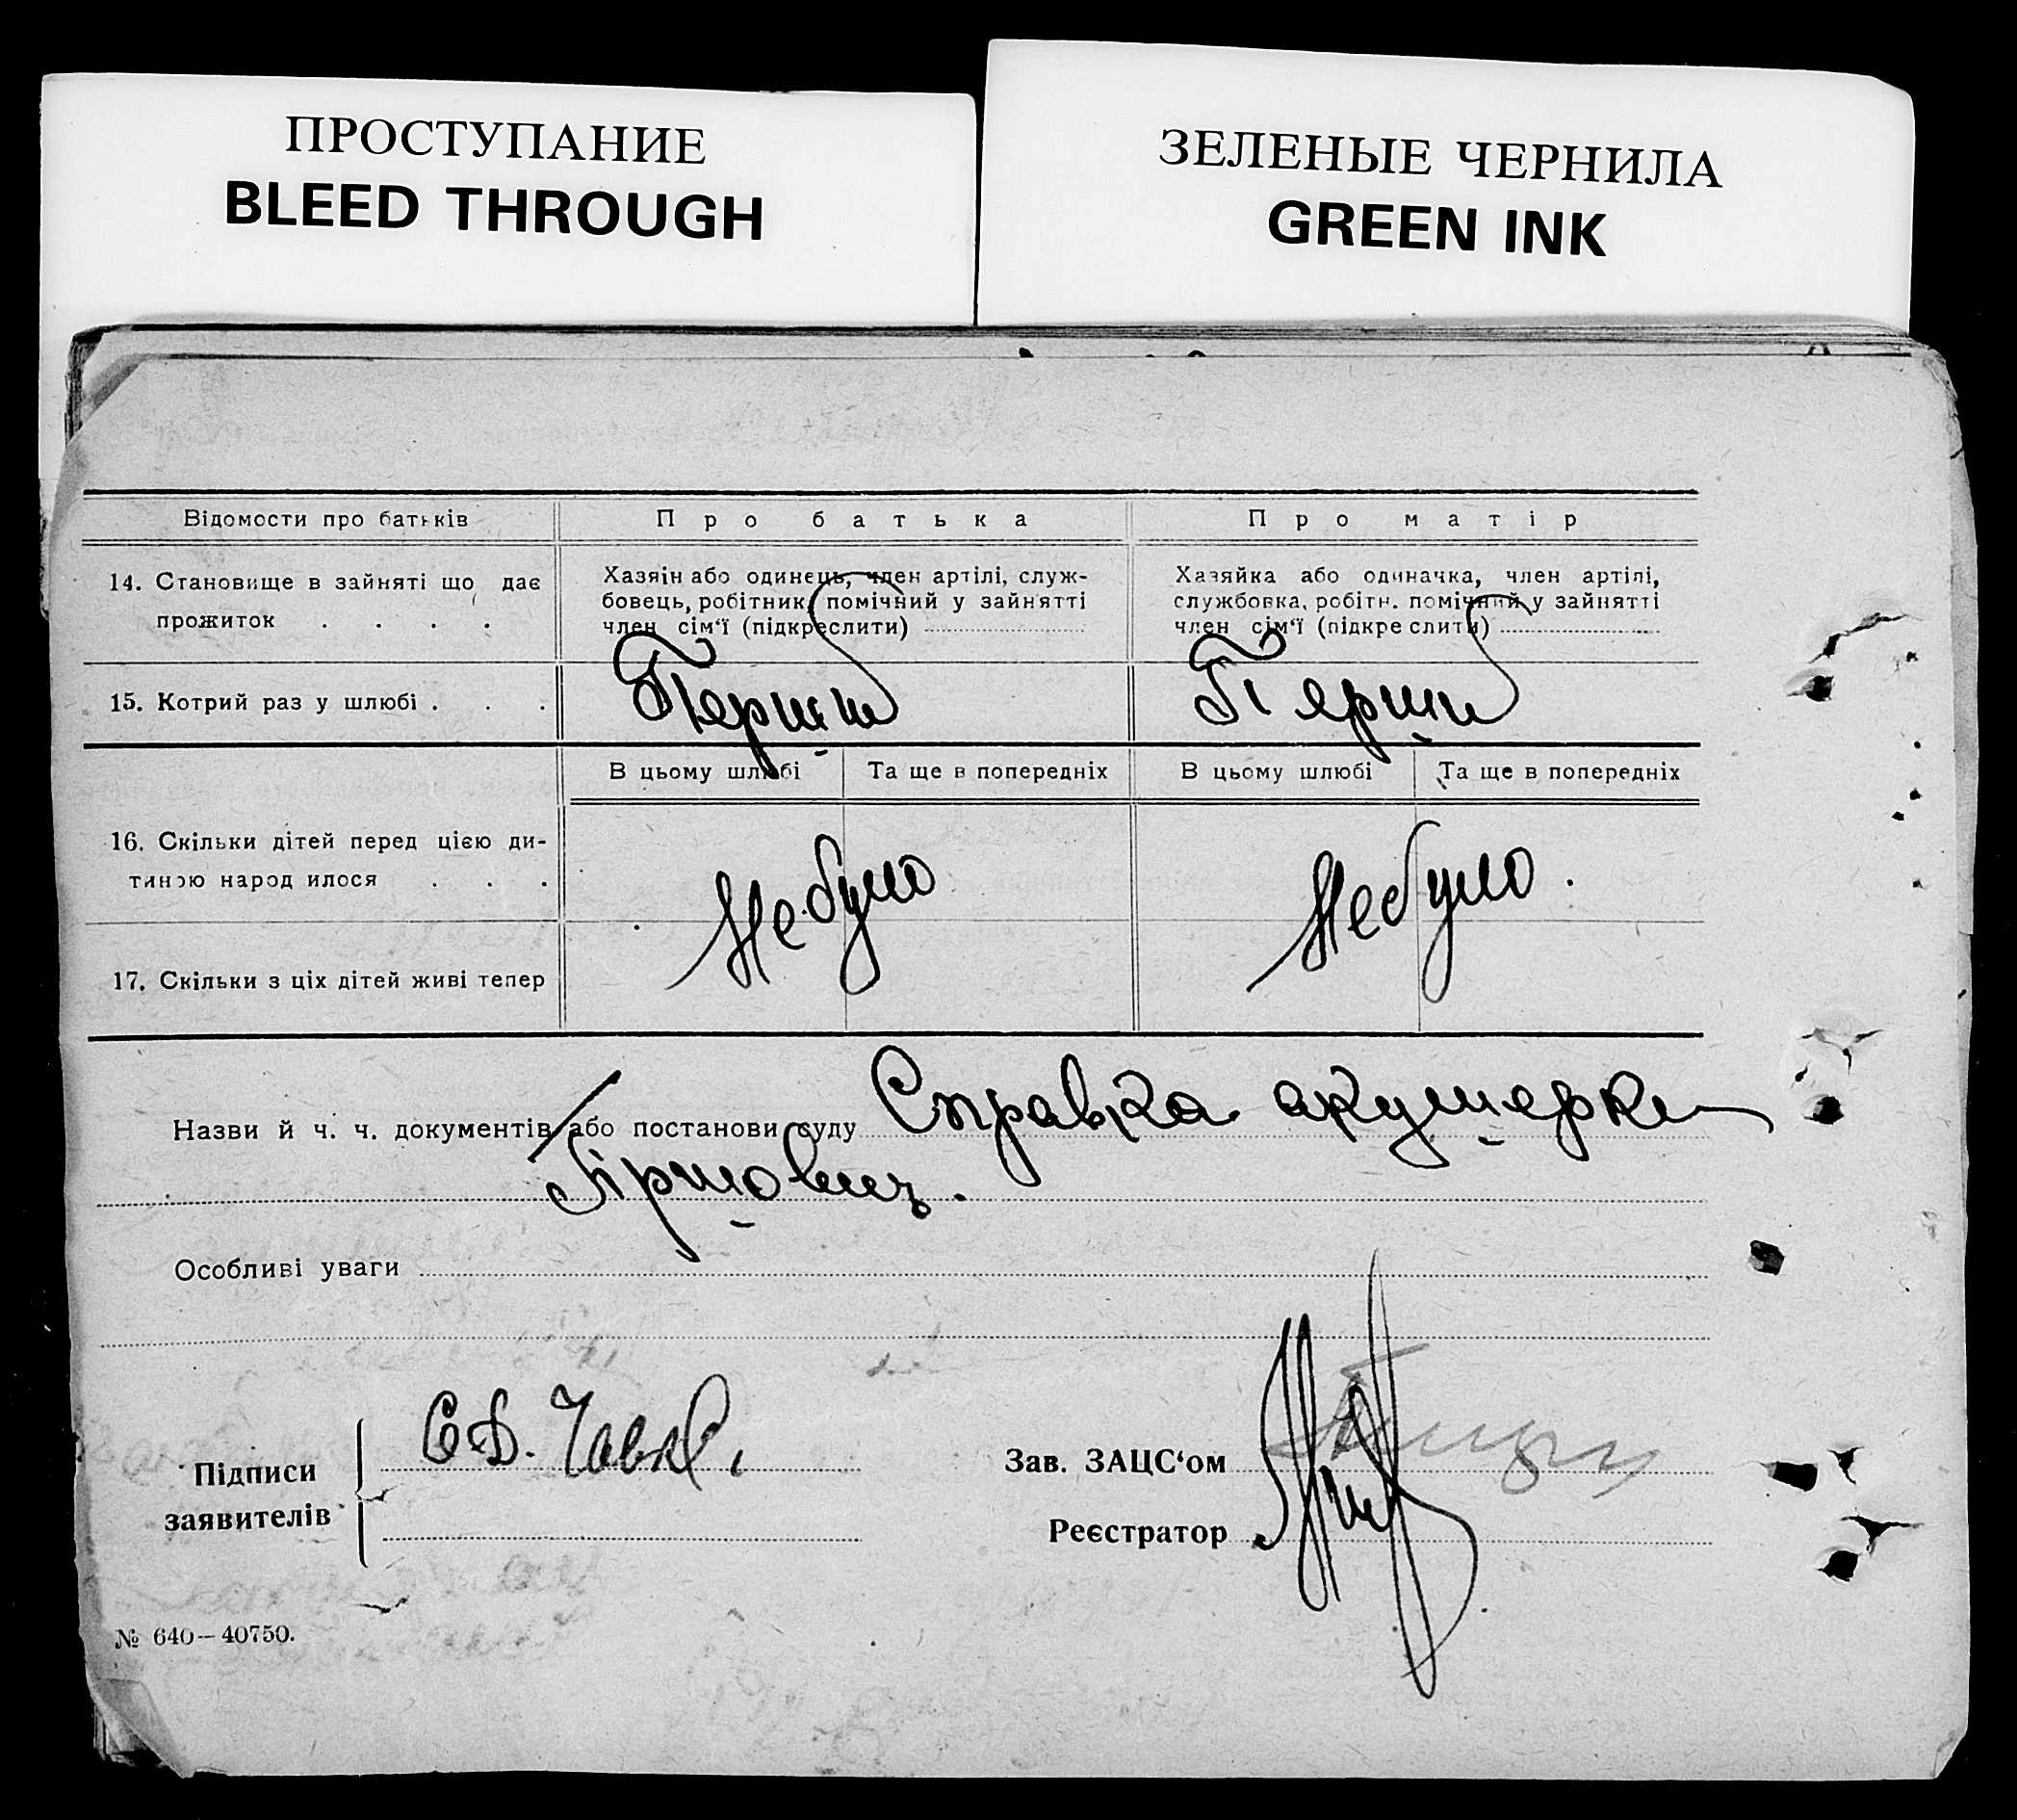 ПРОСТУПАНИЕ
BLEED THROUGH
ЗЕЛЕНЫЕ ЧЕРНИЛА
GREEN INK
Відомости про батьків
Про батька
Про матір
14. Становище в зайняті що дає
прожиток . . . .
Хазяін або одинець, член артілі, служ-
бовець, робітник, помічний у зайнятті
член сім‘ї (підкреслити)
Хазяйка або одиначка, член артілі,
службовка, робітн. помічний у зайнятті
член сім‘ї (підкреслити)
15. Котрий раз у шлюбі . . .
Перший
Перший
В цьому шлюбі
Та ще в попередніх
В цьому шлюбі
Та ще в попередніх
16. Скільки дітей перед цією ди-
тиною народилося . . .
Не було
Не було.
17. Скільки з ціх дітей живі тепер
Назви й ч. ч. документів або постанови суду Справка акушерки
Гіршовиц.
Особливі уваги
Підписи
заявителів
Зав. ЗАЦС‘ом
Реєстратор
№ 640—40750.